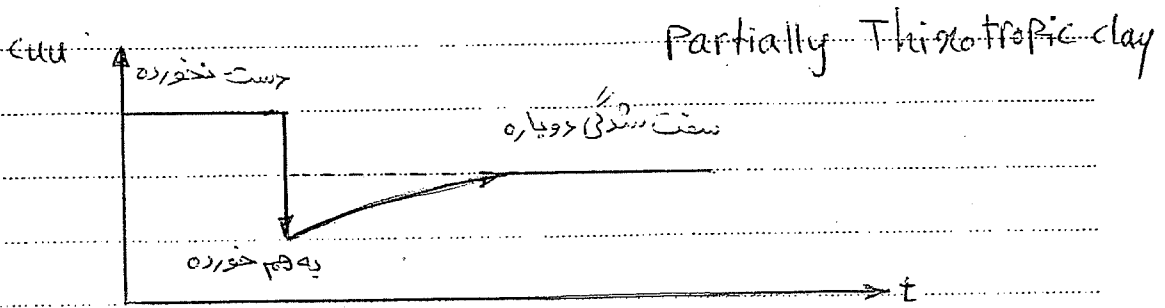 Partially Thixotropic clay
Cuu
دست نخورده
سفت شدگی دوباره
به هم خورده
t